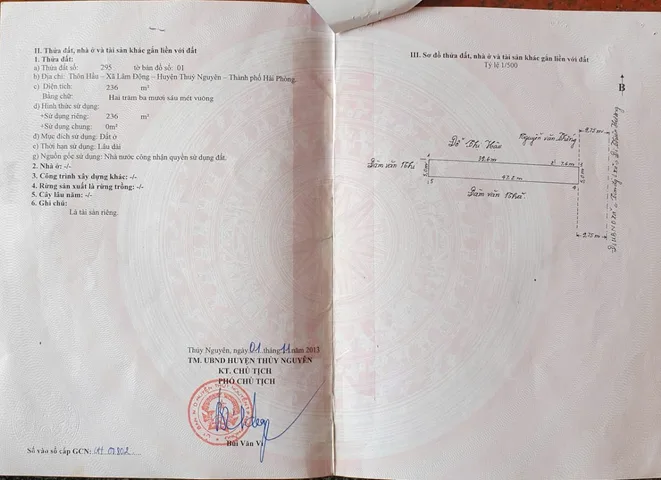 II. Thửa đất, nhà ở và tài sản khác gắn liền với đất
1. Thửa đất:
a) Thửa đất số: 295 tờ bản đồ số: 01
b) Địa chỉ: Thôn Hầu – Xã Lâm Động – Huyện Thuỷ Nguyên – Thành phố Hải Phòng.
c) Diện tích: 236 m²
Bằng chữ: Hai trăm ba mươi sáu mét vuông
d) Hình thức sử dụng:
+Sử dụng riêng: 236 m²
+Sử dụng chung: 0m²
đ) Mục đích sử dụng: Đất ở
e) Thời hạn sử dụng: Lâu dài
g) Nguồn gốc sử dụng: Nhà nước công nhận quyền sử dụng đất.
2. Nhà ở: -/-
3. Công trình xây dựng khác: -/-
4. Rừng sản xuất là rừng trồng: -/-
5. Cây lâu năm: -/-
6. Ghi chú:
Là tài sản riêng.
Thủy Nguyên, ngày 01 tháng 11 năm 2013
TM. UBND HUYỆN THỦY NGUYÊN
KT. CHỦ TỊCH
PHÓ CHỦ TỊCH
Bùi Văn Vi
Số vào sổ cấp GCN: CH 01802
III. Sơ đồ thửa đất, nhà ở và tài sản khác gắn liền với đất
Tỷ lệ 1/500
B
9.75 m
Nguyễn văn
Đỗ Thị
1
2
5.0m
5.0m
5
4
47.2 m
văn
9.75 m